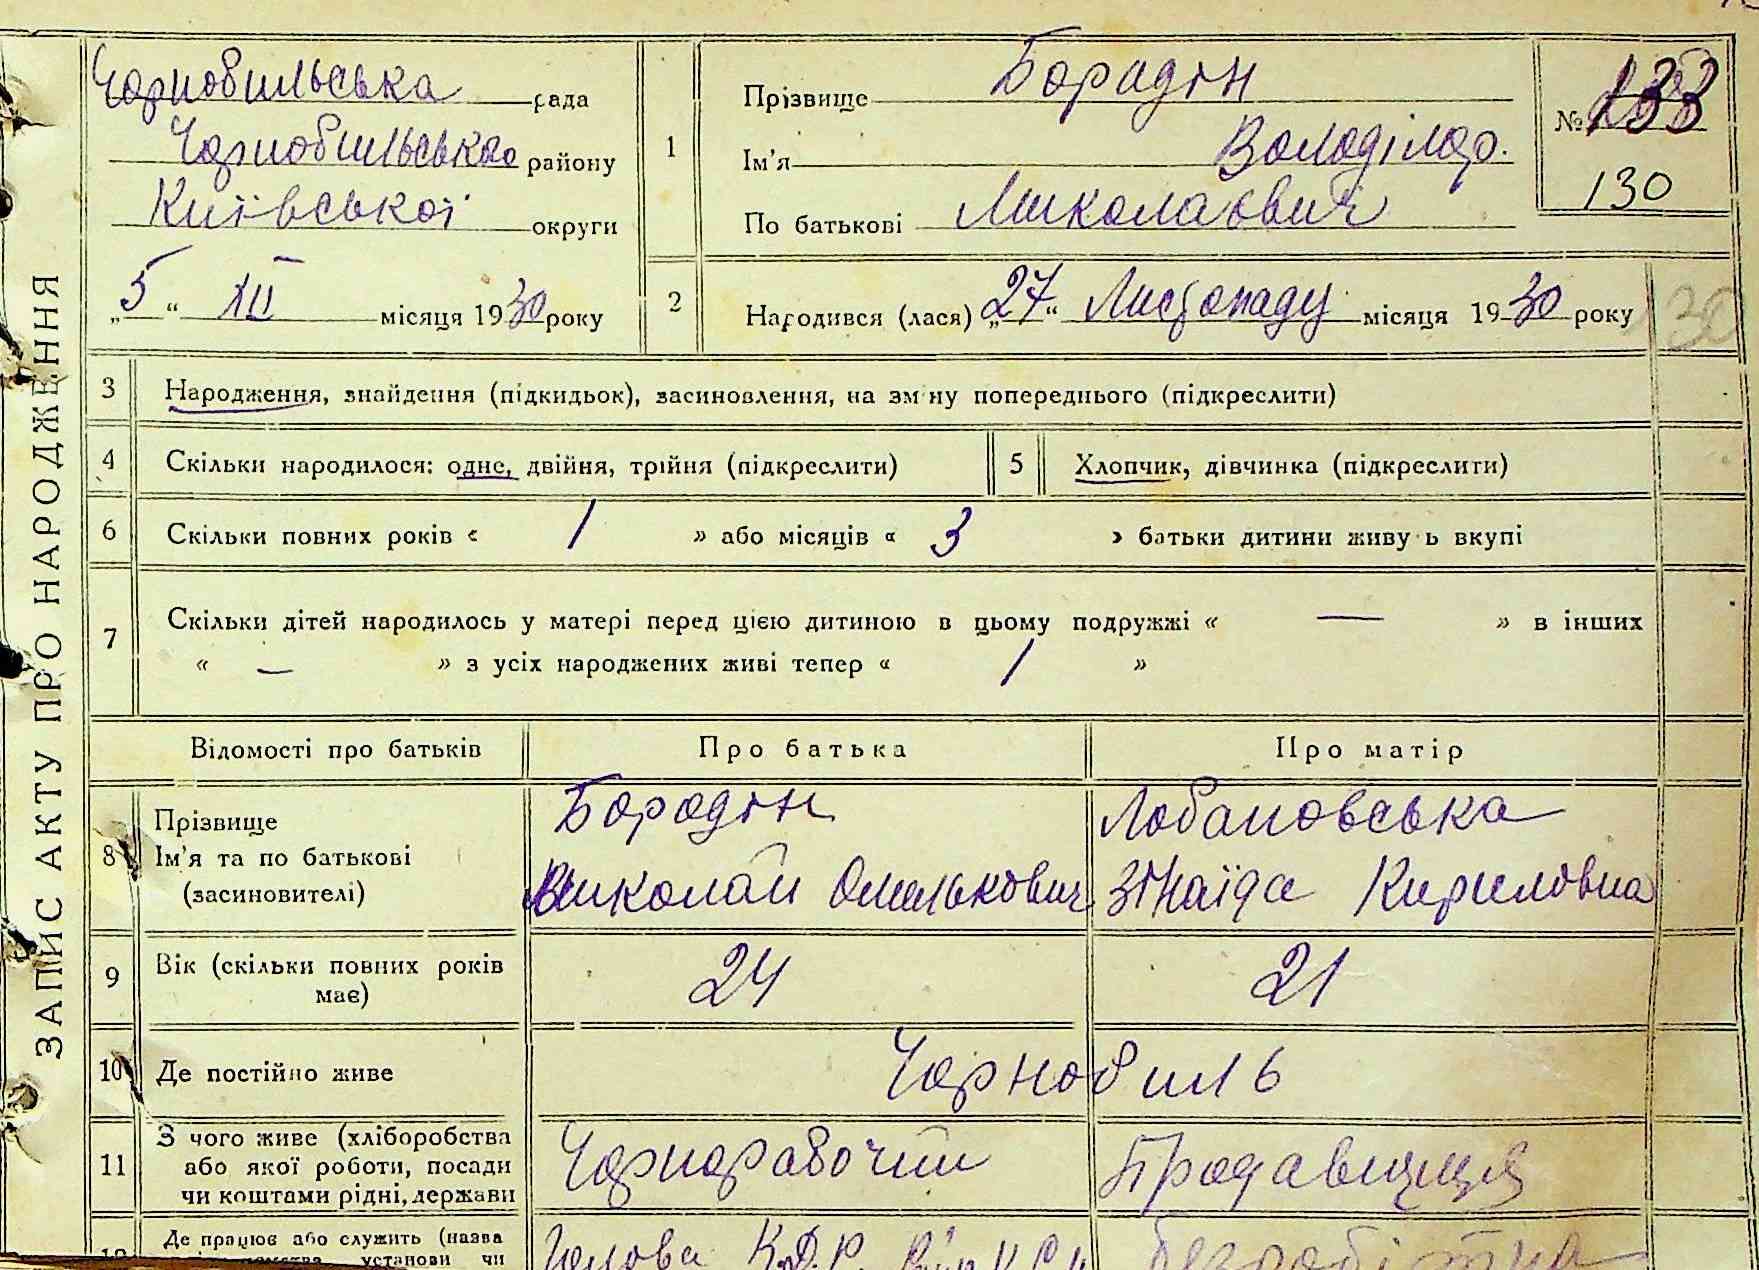 ЗАПИС АКТУ ПРО НАРОДЖЕННЯ
Чорнобильська рада
Чорнобильського району
Київської округи
„5“ XII місяця 1930 року
1 Прізвище Бородін
Ім'я Володімір.
По батькові Миколаєвич
№ 133
130
2 Народився (лася) „27“ Листопаду місяця 1930 року
30
3 Народження, знайдення (підкидьок), засиновлення, на зміну попереднього (підкреслити)
4 Скільки народилося: одне, двійня, трійня (підкреслити)
5 Хлопчик, дівчинка (підкреслити)
6 Скільки повних років « 1 » або місяців « 3 » батьки дитини живуть вкупі
7 Скільки дітей народилось у матері перед цією дитиною в цьому подружжі « — » в інших
« — » з усіх народжених живі тепер « 1 »
Відомості про батьків Про батька Про матір
8 Прізвище
Ім'я та по батькові
(засиновителі)
Бородін
Миколай Омелькович
Лобановська
Зінаїда Кириловна
9 Вік (скільки повних років
має)
24 21
10 Де постійно живе Чорнобиль
11 З чого живе (хліборобства
або якої роботи, посади
чи коштами рідні, держави
Чорнорабочий Продавщиця
Де працює або служить (назва
установи чи
Голова безробітна